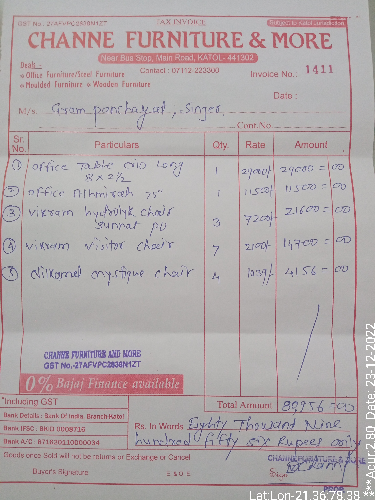 GST No.-27AFVPC2838N1ZT TAX INVOICE Subject to Katol Jurisdiction
CHANNE FURNITURE & MORE
Near Bus Stop, Main Road, KATOL- 441302
Deals :- Contact : 07112-223300 Invoice No.: 1411
Office Furniture/Steel Furniture
Moulded Furniture Wooden Furniture
Date :
M/s. Gram panchayat, Singer,
Cont.No.
Sr. No. Particulars Qty. Rate Amount
① office Table 8 x 2½ 1 29000/- 29000 = 00
② office Almirah 75" 1 11500/- 11500 = 00
③ vikram hydrolyk chair 3 7200/- 21600 = 00
④ vikram visitor chair 7 2100/- 14700 = 00
⑤ mystique chair 4 4156 = 00
CHANNE FURNITURE AND MORE
GST No.-27AFVPC2838N1ZT
0% Bajaj Finance available
*Including GST Total Amount 80956 = 00
Bank Details : Bank Of India Branch Katol
Bank IFSC : BKID 0008716
Bank A/C : 871630110000034
Rs. In Words Eighty Thousand Nine
hundread fifty six Rupees only
Goods once Sold will not be Returns or Exchange or Cancel
CHANNE FURNITURE & MORE
Buyer's Signature E & O E
PROP.
Lat:Lon-21.36:78.38
***Acur:2.80 Date: 23-12-2022